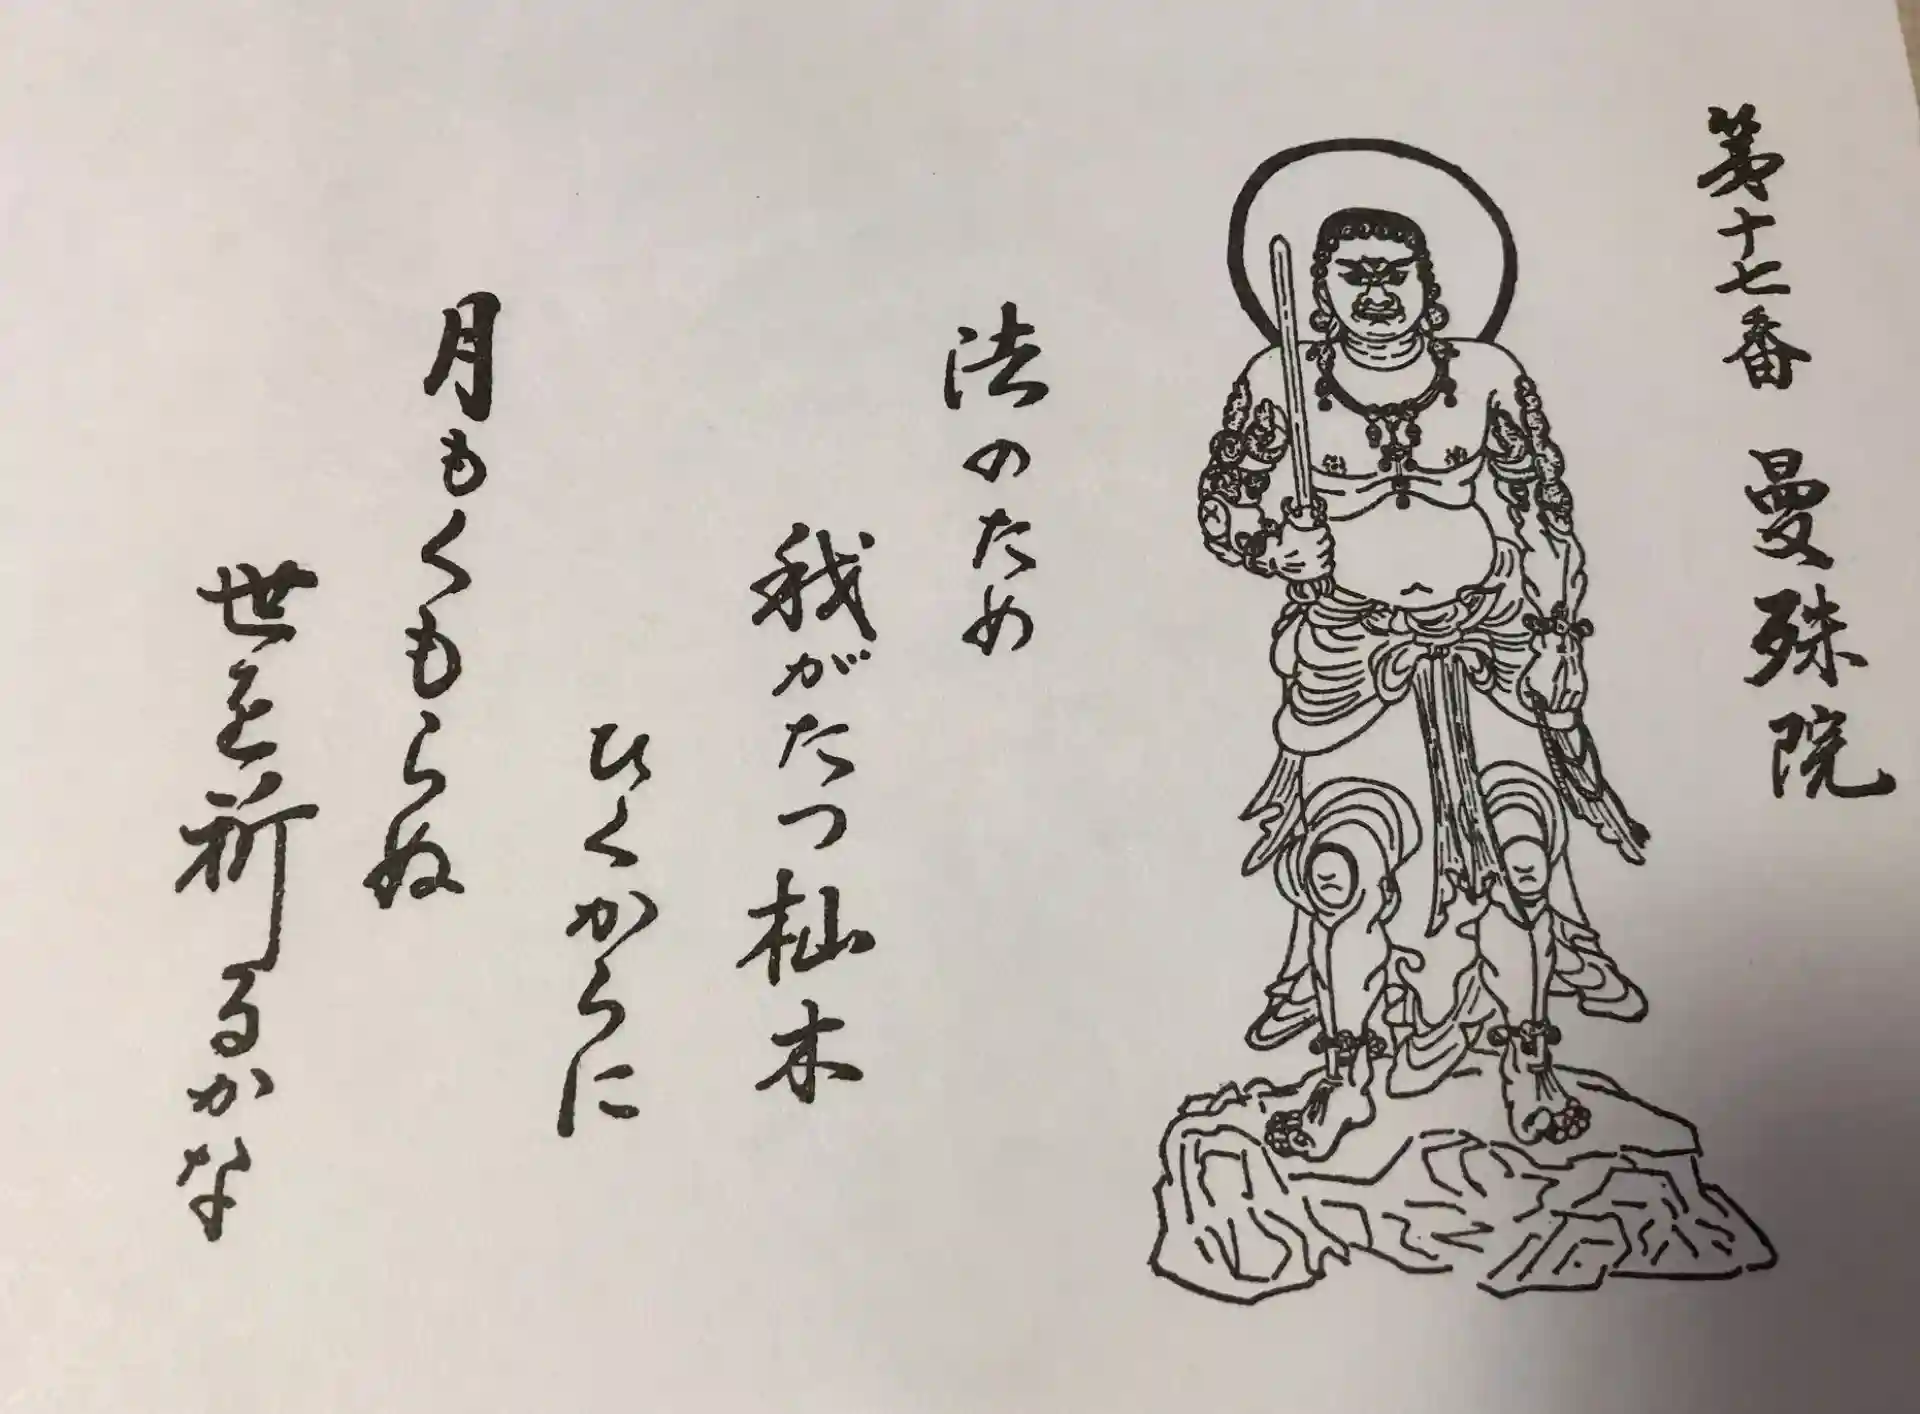 第十七番 曼殊院
法のため
我がたつ杣木
ひくからに
月もくもらぬ
世を祈るかな